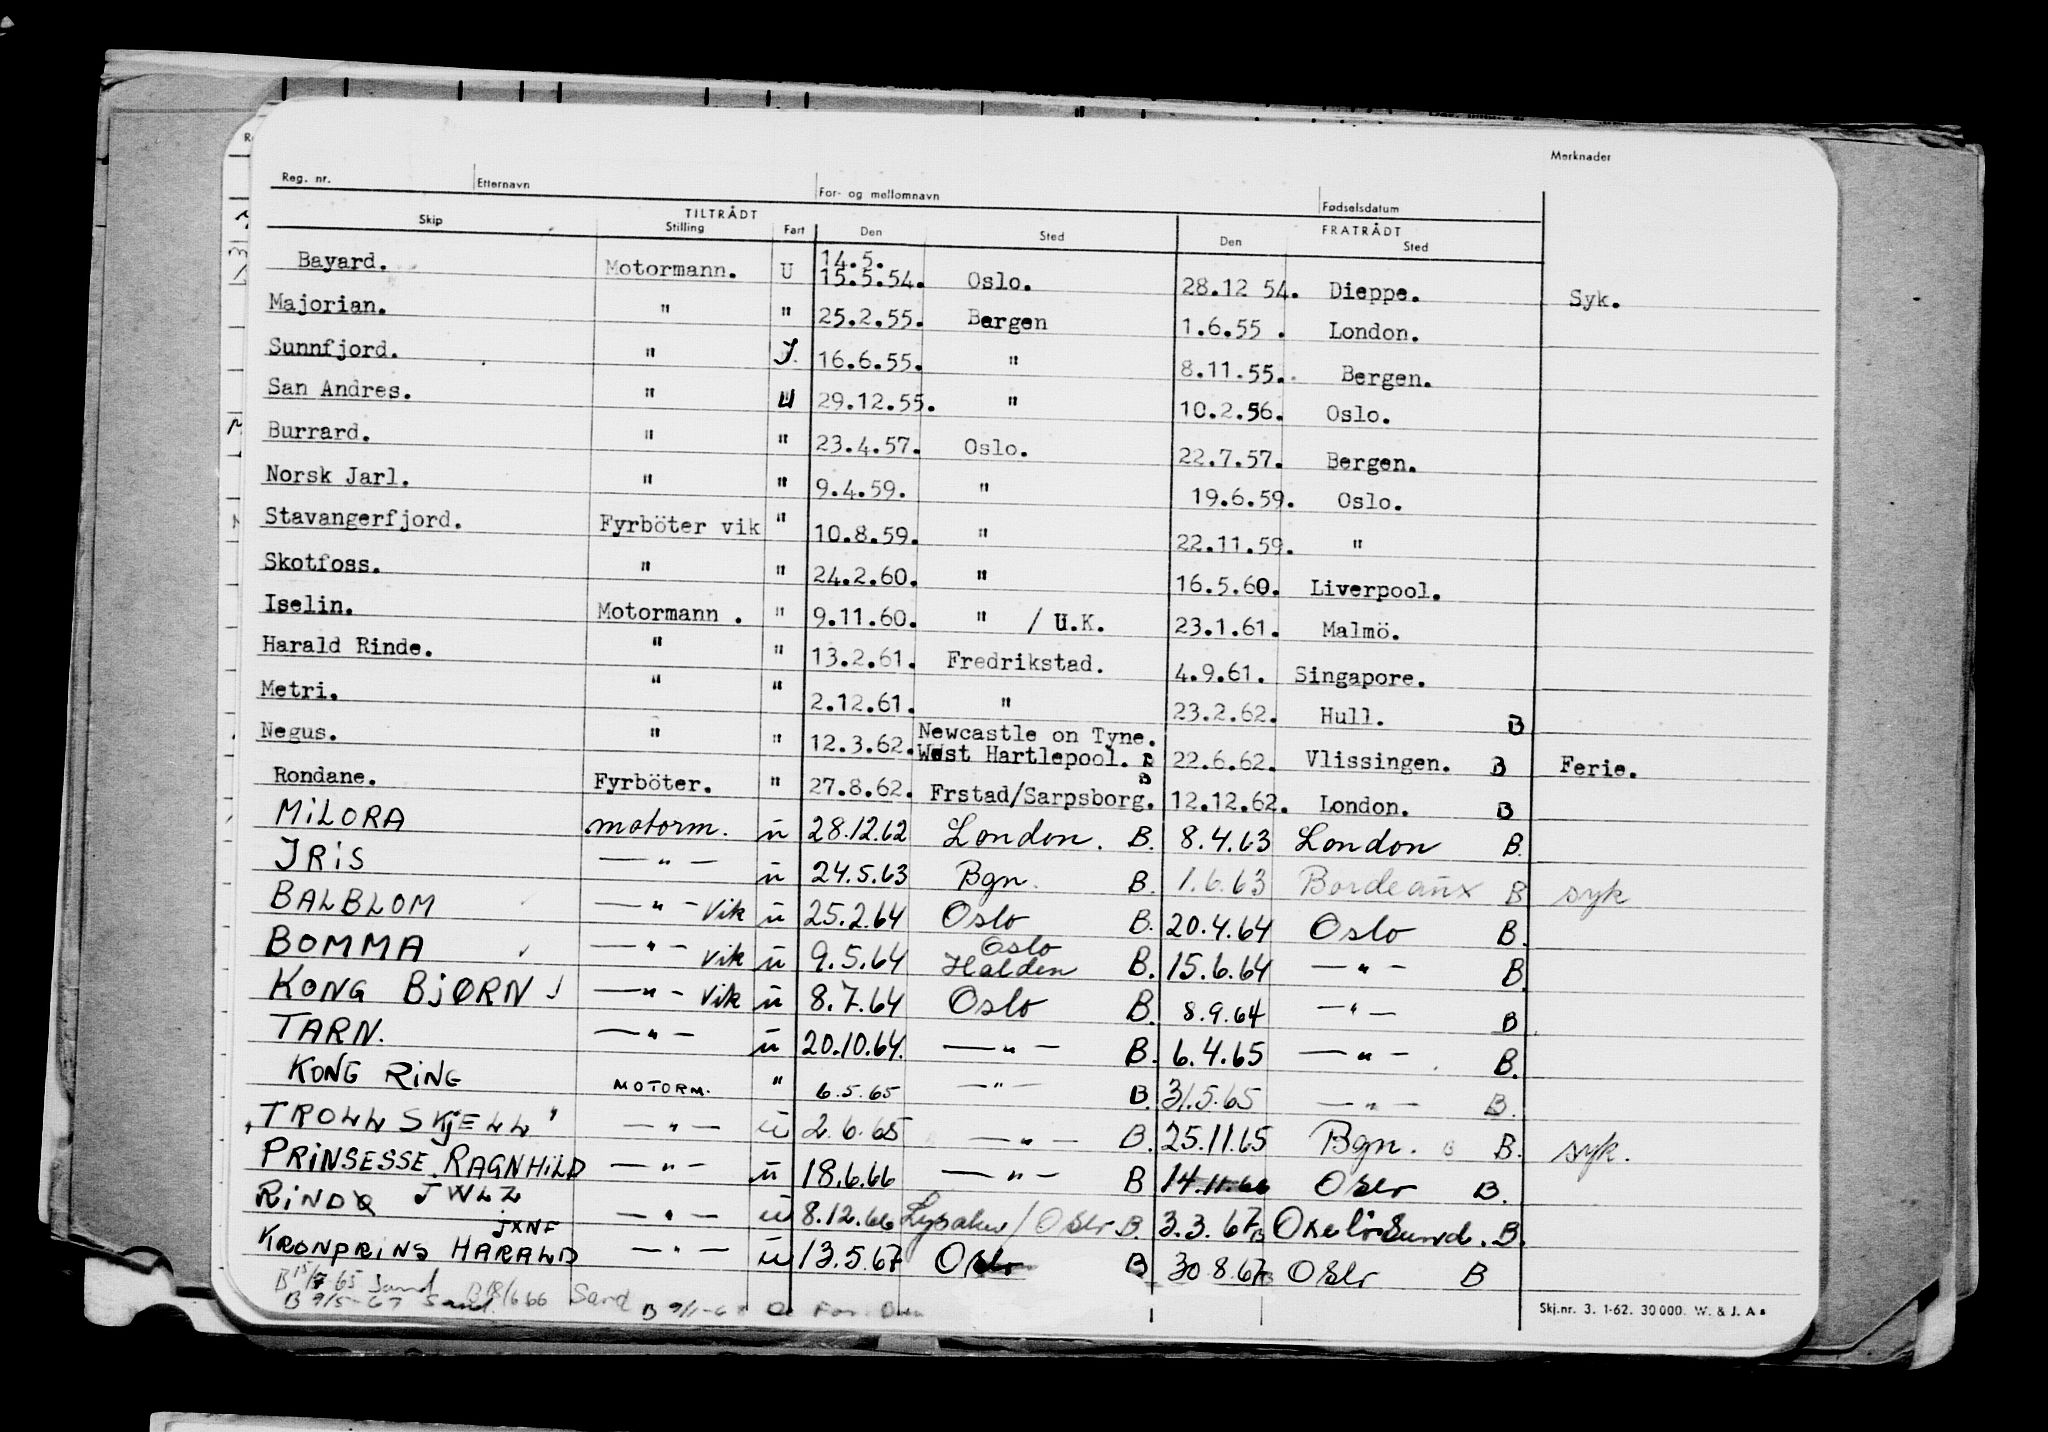 Merknader
Reg. nr. Etternavn For- og mellomnavn Fødselsdatum
TILTRÅDT FRATRÅDT
Skip Stilling Fart Den Sted Den Sted
Bayard. Motormann. U 14.5. 15.5.54. Oslo. 28.12 54. Dieppe. Syk.
Majorian. " " 25.2.55. Bergen 1.6.55 . London.
Sunnfjord. " J. 16.6.55. " 8.11.55. Bergen.
San Andres. " U 29.12.55. " 10.2.56. Oslo.
Burrard. " " 23.4.57. Oslo. 22.7.57. Bergen.
Norsk Jarl. " " 9.4.59. " 19.6.59. Oslo.
Stavangerfjord. Fyrböter vik " 10.8.59. " 22.11.59. "
Skotfoss. " " 24.2.60. " 16.5.60. Liverpool.
Iselin. Motormann . " 9.11.60. " / U.K. 23.1.61. Malmö.
Harald Rinde. " " 13.2.61. Fredrikstad. 4.9.61. Singapore.
Metri. " " 2.12.61. " 23.2.62. Hull. B
Negus. " " 12.3.62. Newcastle on Tyne. West Hartlepool. B 22.6.62. Vlissingen. B Ferie.
Rondane. Fyrböter. " 27.8.62. Frstad/Sarpsborg. B 12.12.62. London. B
MILORA motorm. u 28.12.62 London. B. 8.4.63 London B.
IRIS — " — u 24.5.63 Bgn. B. 1.6.63 Bordeaux B syk
BALBLOM — " — vik u 25.2.64 Oslo B. 20.4.64 Oslo B.
BOMMA — " — vik u 9.5.64 Oslo Halden B. 15.6.64 — " — B.
KONG BJØRN — " — vik u 8.7.64 Oslo B. 8.9.64 — " — B
TARN. — " — u 20.10.64. — " — B. 6.4.65 — " — B.
KONG RING MOTORM. " 6.5.65 — " — B. 31.5.65 — " — B.
"TROLLSKJELL" — " — u 2.6.65 — " — B. 25.11.65 Bgn. B. syk.
PRINSESSE RAGNHILD — " — u 18.6.66 — " — B 14.11.66 Oslo B.
RINDØ JWLZ — " — u 8.12.66 Lysaker / Oslo B. 3.3.67 B Oxelösund. B.
JXNF
KRONPRINS HARALD — " — u 13.5.67 Oslo B 30 8.67 B Oslo B
B 15/7 65 Sand B 18/6 66 Sand
B 9/5-67 Sand.
Skj.nr. 3. 1-62. 30 000. W. & J. A s